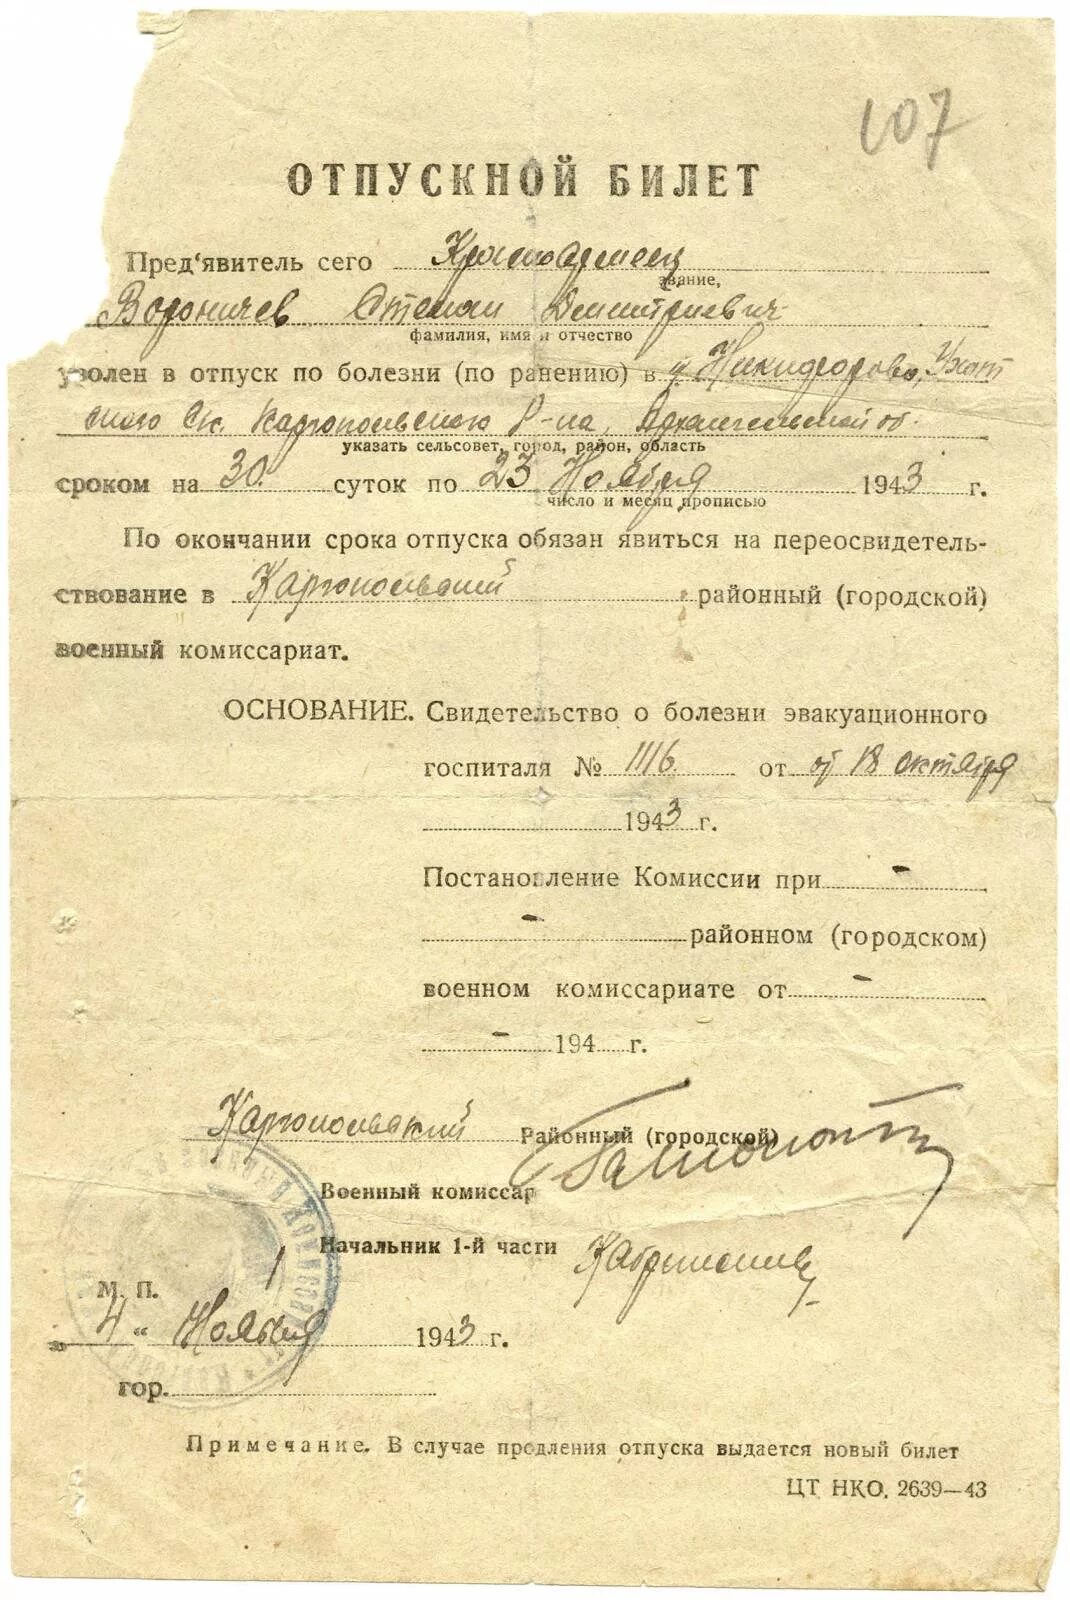 107
ОТПУСКНОЙ БИЛЕТ
Пред'явитель сего Красноармеец
звание,
Вороничев Степан Дмитриевич
фамилия, имя и отчество
уволен в отпуск по болезни (по ранению) в д. Никифорово, Ухот
ского Ск. Каргопольского Р-на, Архангельской об.
указать сельсовет, город, район, область
сроком на 30. суток по 23 Ноября 1943 г.
число и месяц прописью
По окончании срока отпуска обязан явиться на переосвидетель-
ствование в Каргопольский районный (городской)
военный комиссариат.
ОСНОВАНИЕ. Свидетельство о болезни эвакуационного
госпиталя № 1116. от от 18 октября
1943 г.
Постановление Комиссии при -
- районном (городском)
военном комиссариате от -
- 194 г.
Каргопольский Районный (городской)
Военный комиссар
Начальник 1-й части
М. П.
4 " Ноября 1943 г.
гор.
Примечание. В случае продления отпуска выдается новый билет
ЦТ НКО. 2639—43